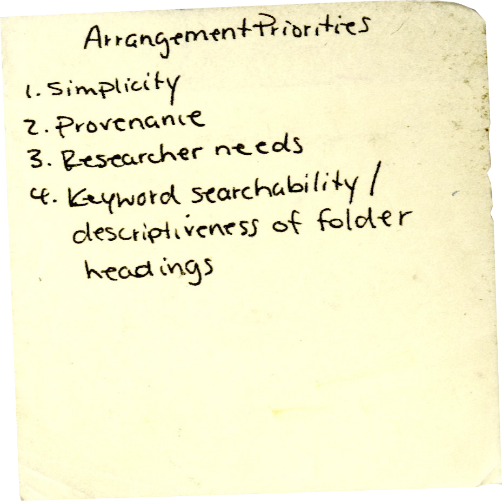 Arrangement Priorities
1. Simplicity
2. Provenance
3. Researcher needs
4. Keyword searchability /
descriptiveness of folder
headings